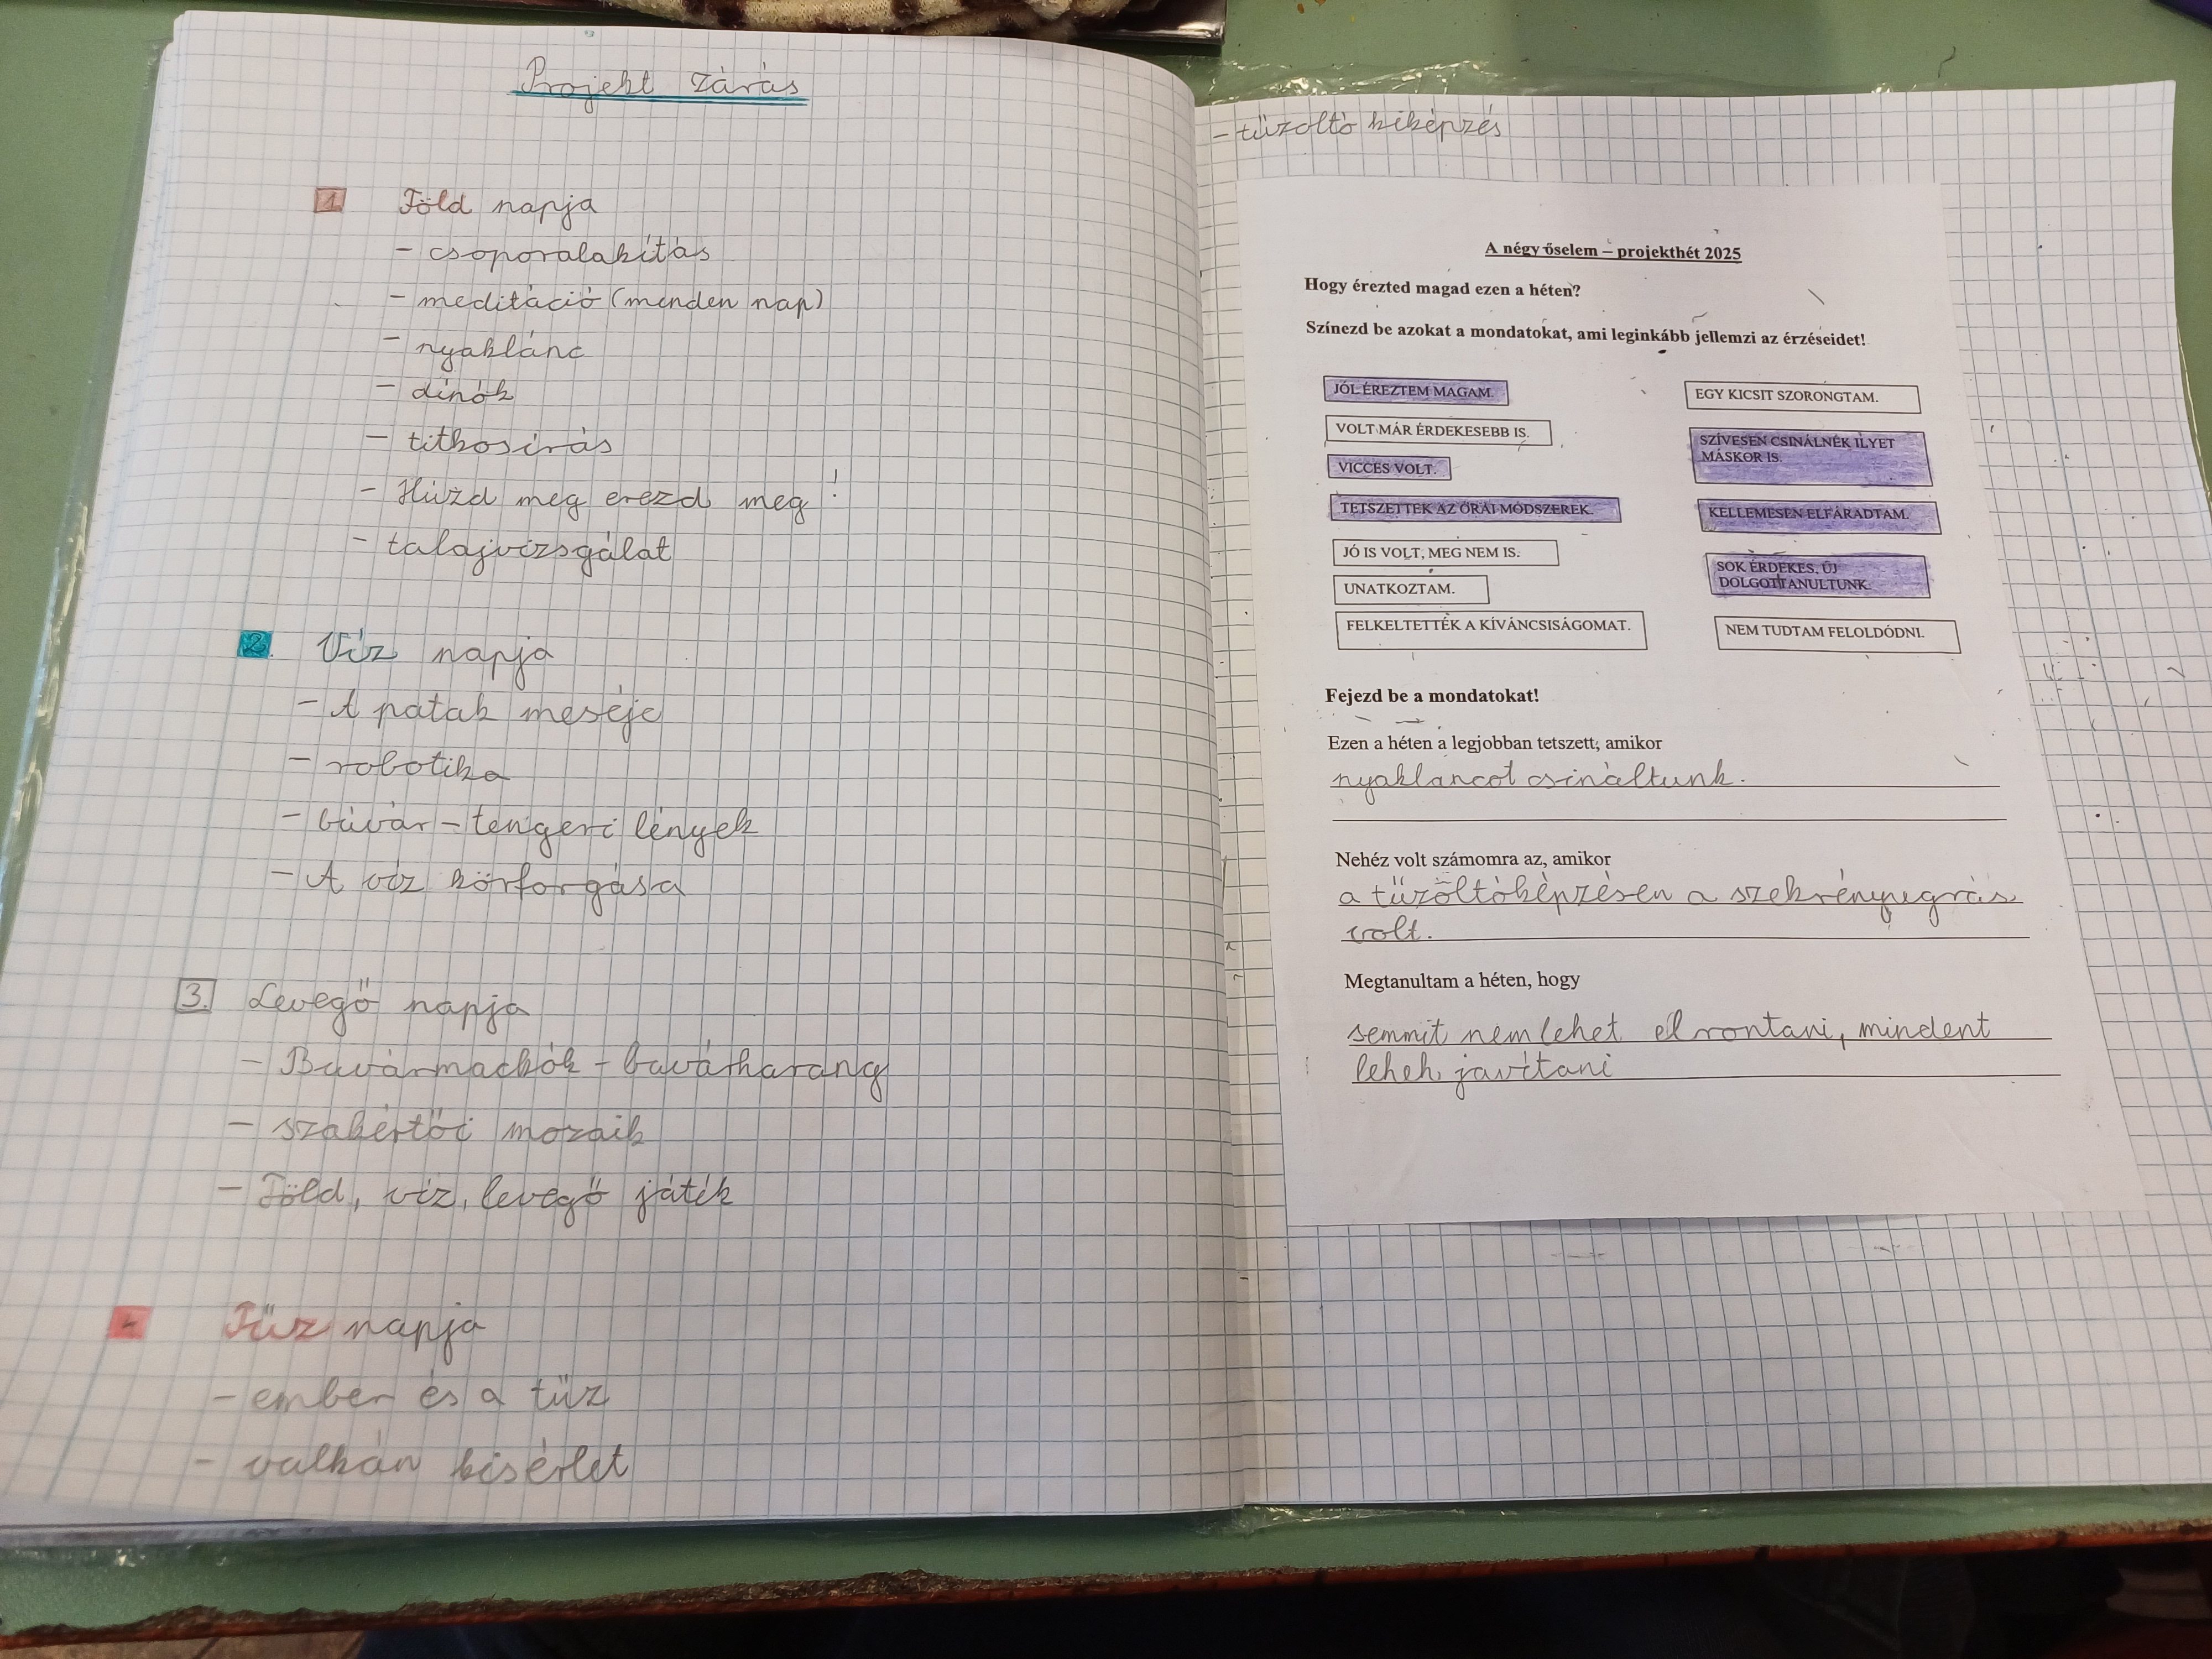 Projekt zárás
1. Föld napja
- csoporalakítás
- meditáció (minden nap)
- nyaklánc
- dínók
- titkosírás
- Húzd meg erezd meg!
- talajvizsgálat
2. Víz napja
- A patak meséje
- robotika
- búvár - tengeri lények
- A víz körforgása
3. Levegő napja
- Buvármackók - buvárharang
- szakértői mozaik
- Föld, víz, levegő játék
4 Tűz napja
- ember és a tűz
- vulkán kisérlet
- tűzoltó kiképzés
A négy őselem – projekthét 2025
Hogy érezted magad ezen a héten?
Színezd be azokat a mondatokat, ami leginkább jellemzi az érzéseidet!
JÓL ÉREZTEM MAGAM.
VOLT MÁR ÉRDEKESEBB IS.
VICCES VOLT.
TETSZETTEK AZ ÓRAI MÓDSZEREK.
JÓ IS VOLT, MEG NEM IS.
UNATKOZTAM.
FELKELTETTÉK A KÍVÁNCSISÁGOMAT.
EGY KICSIT SZORONGTAM.
SZÍVESEN CSINÁLNÉK ILYET
MÁSKOR IS.
KELLEMESEN ELFÁRADTAM.
SOK ÉRDEKES, ÚJ
DOLGOT TANULTUNK.
NEM TUDTAM FELOLDÓDNI.
Fejezd be a mondatokat!
Ezen a héten a legjobban tetszett, amikor
nyakláncot csináltunk.
Nehéz volt számomra az, amikor
a tűzoltóképzésen a szekrényugrás
volt.
Megtanultam a héten, hogy
semmit nem lehet el rontani, mindent
leheh javítani